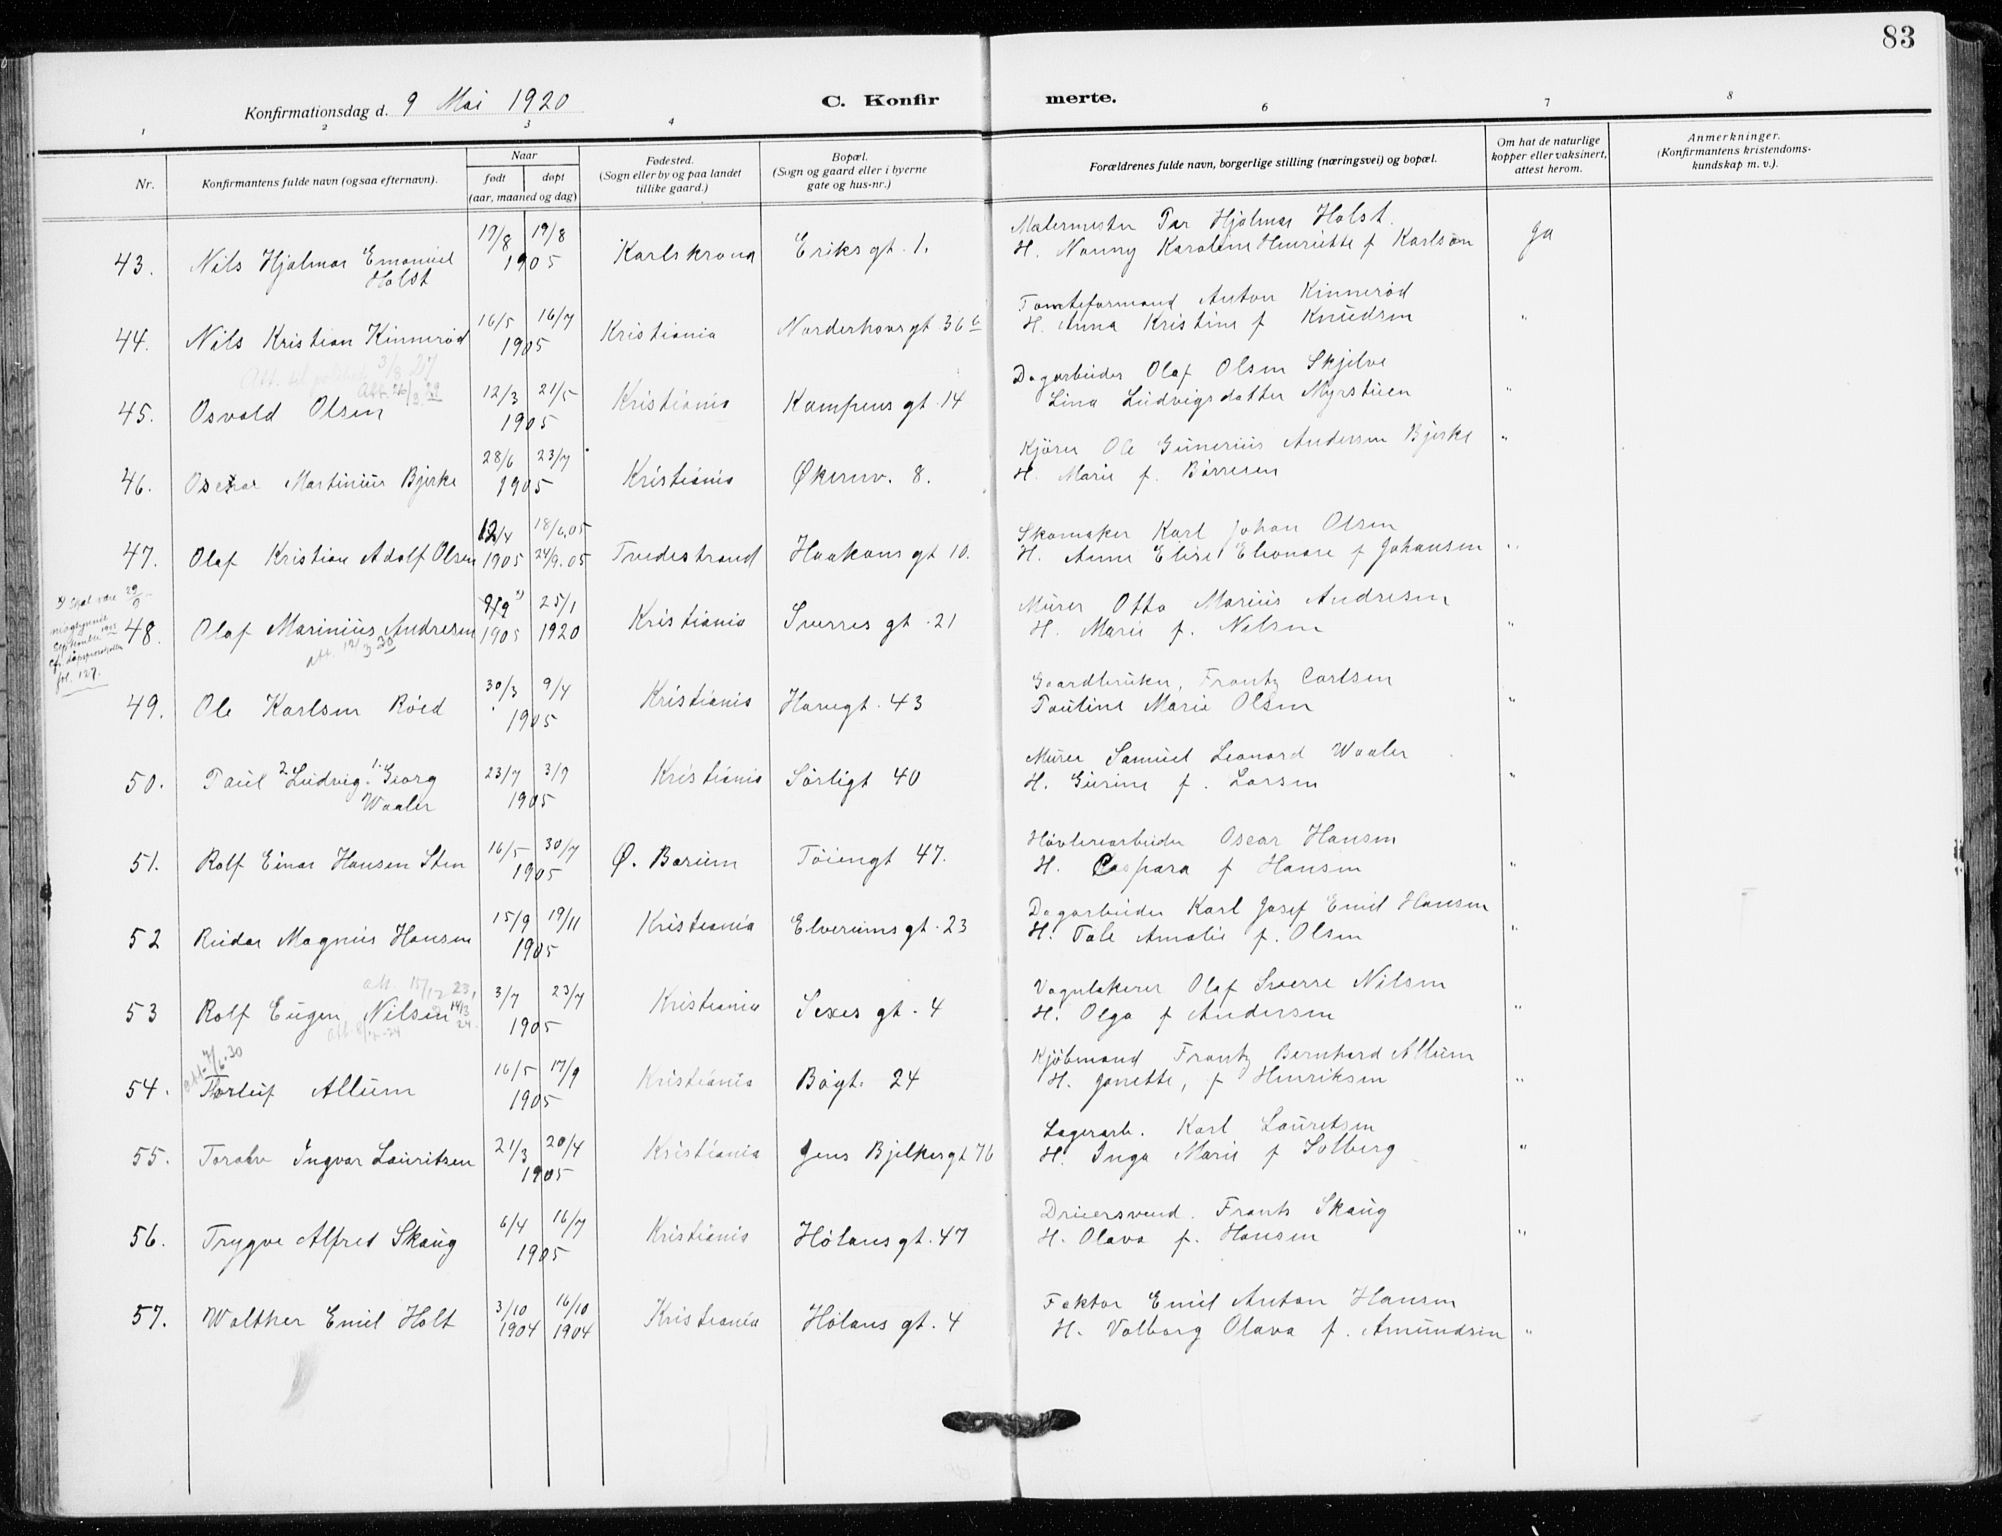 83
Konfirmationsdag d. 9 Mai 1920
C. Konfirmerte.
1 2 3 4 6 7 8
Nr.
Konfirmantens fulde navn (ogsaa efternavn).
Naar
født døpt
(aar, maaned og dag)
Fødested.
(Sogn eller by og paa landet
tillike gaard.)
Bopæl.
(Sogn og gaard eller i byerne
gate og hus-nr.)
Forældrenes fulde navn, borgerlige stilling (næringsvei) og bopæl.
Om hat de naturlige
kopper eller vaksinert,
attest herom.
Anmerkninger.
(Konfirmantens kristendoms-
kundskap m. v.).
19/8 19/8 Malermester Per Hjalmar Holst.
43. Nils Hjalmar Emanuel 1905 Karlskrona Eriks gt. 1. H. Nanny Karoline Henriette f Karlson Ja
Holst
16/5 16/7 Tomteformand Anton Kinnerød
44. Nils Kristian Kinnerød 1905 Kristiania Norderhovsgt. 36 H. Anna Kristine f Knudsen "
Att. 3/8 27
Att. 26/3 29
12/3 21/5 Dagarbeider Olaf Olsen Skjelve
45. Osvald Olsen 1905 Kristiania Kampens gt. 14 Lina Ludvigsdatter Myrstuen "
28/6 23/7 Kjører Ole Gunerius Andersen Bjerke
46. Oscar Martinius Bjerke 1905 Kristiania Økernv. 8. H. Marie f. Børresen "
12/4 18/6.05 Skomaker Karl Johan Olsen
47. Olaf Kristian Adolf Olsen 1905 24/9.05 Tvedestrand Haakons gt 10. H. Anne Elise Eleonore f Johansen "
25/1 Murer Otto Marius Andresen
48. Olaf Marinius Andresen 1905 1920 Kristiania Sverres gt. 21 H. Marie f. Nilsen "
att. 12/3 30
x) Skal være 29/9
September 1905
fol. 127.
30/3 9/4 Gaardbruker, Frantz Carlsen
49. Ole Karlsen Røed 1905 Kristiania Havegt. 43 Pauline Marie Olsen "
23/7 3/9 Murer Samuel Leonard Waaler
50. Paul 2. Ludvig 1. Georg 1905 Kristiania Sørligt 40 H. Gurine f. Larsen "
Waaler
16/5 30/7 Høvleriarbeider Oscar Hansen
51. Rolf Einar Hansen Sten 1905 Ø. Bærum Tøiengt 47. H. Caspara f Hansen "
15/9 19/11 Dagarbeider Karl Josef Emil Hansen
52 Reidar Magnus Hansen 1905 Kristiania Elverums gt. 23 H. Tale Amalie f. Olsen "
att. 15/12 23,
3/7 23/7 Vognlakerer Olaf Sverre Nilsen
53 Rolf Eugen Nilsen 14/3 24. 1905 Kristiania Sexes gt. 4 H. Olga f Andersen "
att. 7/6.30
16/5 17/9 Kjøbmand Frantz Bernhard Allum
54. Torleif Allum 1905 Kristiania Bøgt. 24 H. Janette, f Henriksen "
21/3 20/4 Lagerarb. Karl Lauritsen
55. Toralv Ingvar Lauritsen 1905 Kristiania Jens Bjelkesgt 76 H. Inga Marie f Solberg "
6/4 16/7 Dreiersvend. Frants Skaug
56. Trygve Alfred Skaug 1905 Kristiania Hølans gt. 47 H. Olava f. Hansen "
3/10 16/10 Faktor Emil Anton Hansen
57. Walther Emil Holt 1904 1904 Kristiania Hølans gt. 4 H. Valborg Olava f. Amundsen "